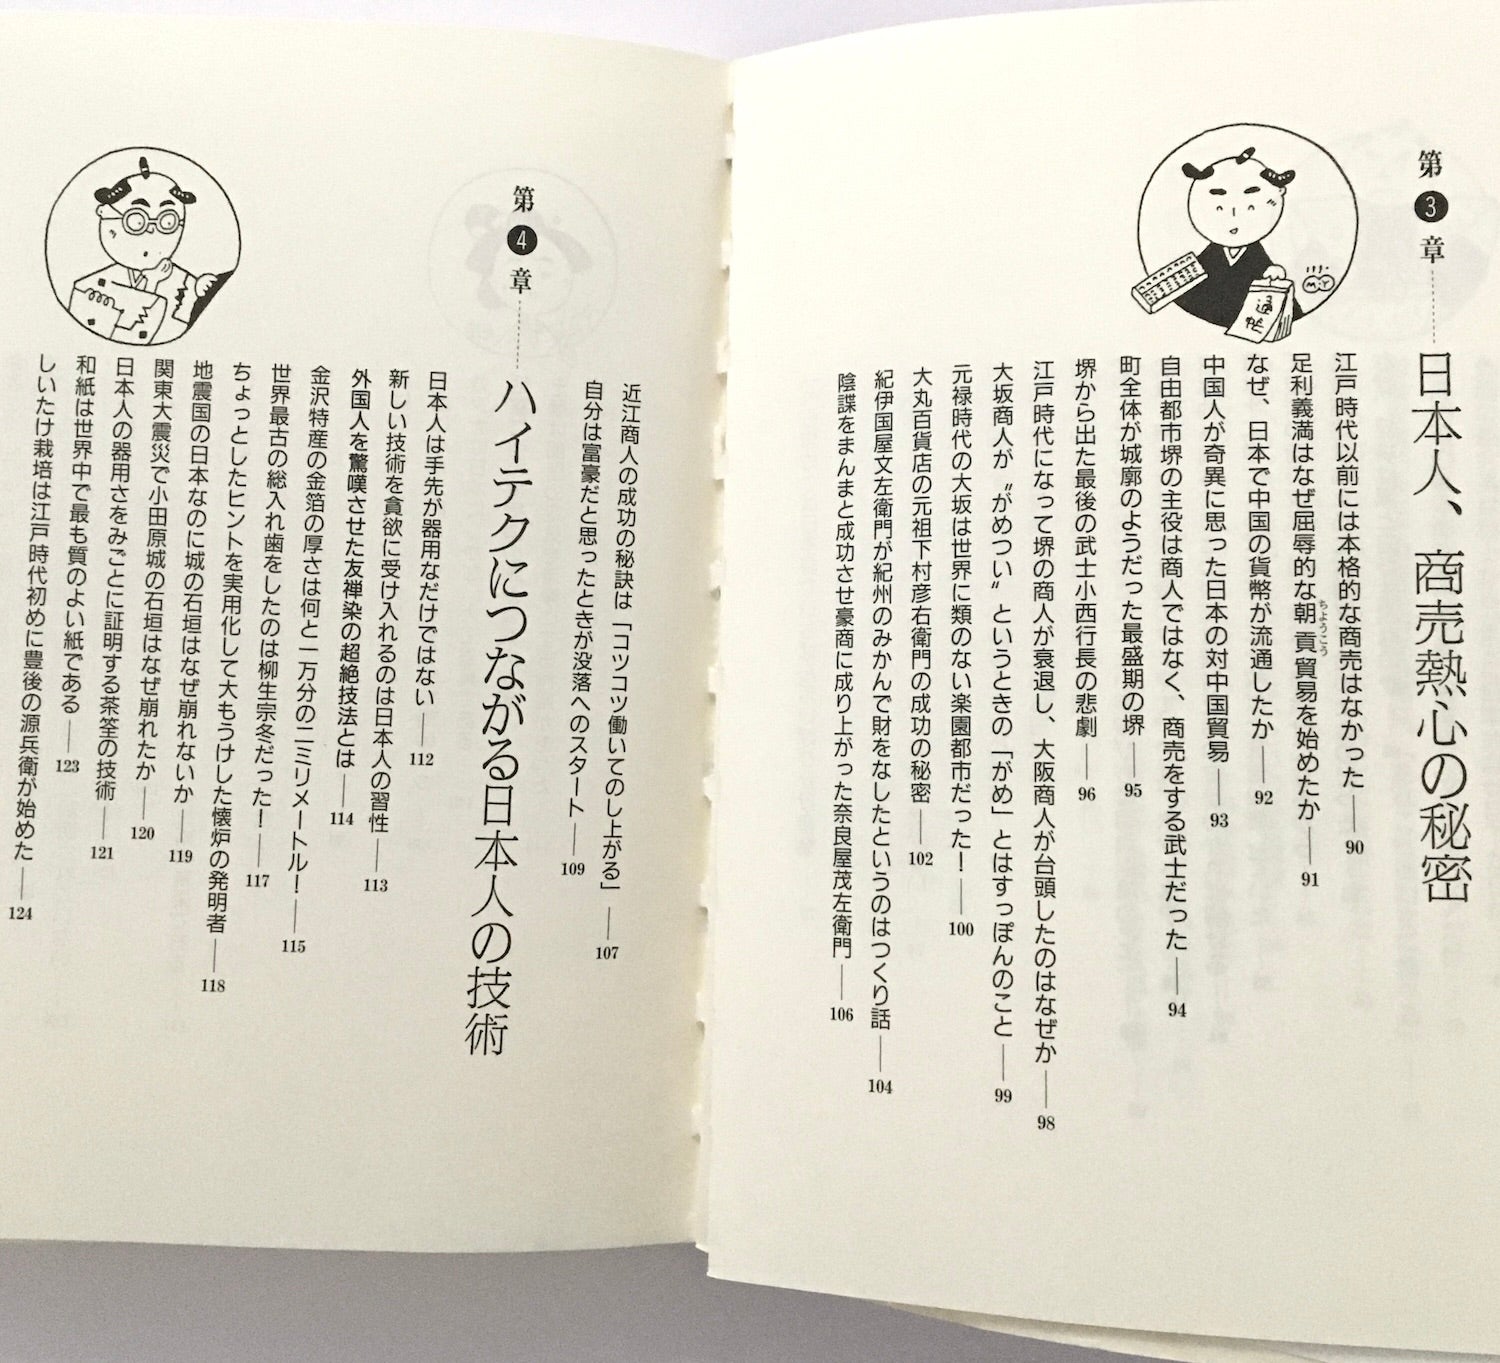 第3章
日本人、商売熱心の秘密
江戸時代以前には本格的な商売はなかった――90
足利義満はなぜ屈辱的な朝貢貿易を始めたか――91
ちょうこう
なぜ、日本で中国の貨幣が流通したか――92
中国人が奇異に思った日本の対中国貿易――93
自由都市堺の主役は商人ではなく、商売をする武士だった――94
町全体が城廓のようだった最盛期の堺――95
堺から出た最後の武士小西行長の悲劇――96
江戸時代になって堺の商人が衰退し、大阪商人が台頭したのはなぜか――98
大坂商人が〝がめつい〟というときの「がめ」とはすっぽんのこと――99
元禄時代の大坂は世界に類のない楽園都市だった!――100
大丸百貨店の元祖下村彦右衛門の成功の秘密――102
紀伊国屋文左衛門が紀州のみかんで財をなしたというのはつくり話――104
陰謀をまんまと成功させ豪商に成り上がった奈良屋茂左衛門――106
通帳
近江商人の成功の秘訣は「コツコツ働いてのし上がる」――107
自分は富豪だと思ったときが没落へのスタート――109
第4章
ハイテクにつながる日本人の技術
日本人は手先が器用なだけではない――112
新しい技術を貪欲に受け入れるのは日本人の習性――113
外国人を驚嘆させた友禅染の超絶技法とは――114
金沢特産の金箔の厚さは何と一万分の二ミリメートル!――115
世界最古の総入れ歯をしたのは柳生宗冬だった!――117
ちょっとしたヒントを実用化して大もうけした懐炉の発明者――118
地震国の日本なのに城の石垣はなぜ崩れないか――119
関東大震災で小田原城の石垣はなぜ崩れたか――120
日本人の器用さをみごとに証明する茶筌の技術――121
和紙は世界中で最も質のよい紙である――123
しいたけ栽培は江戸時代初めに豊後の源兵衛が始めた――124